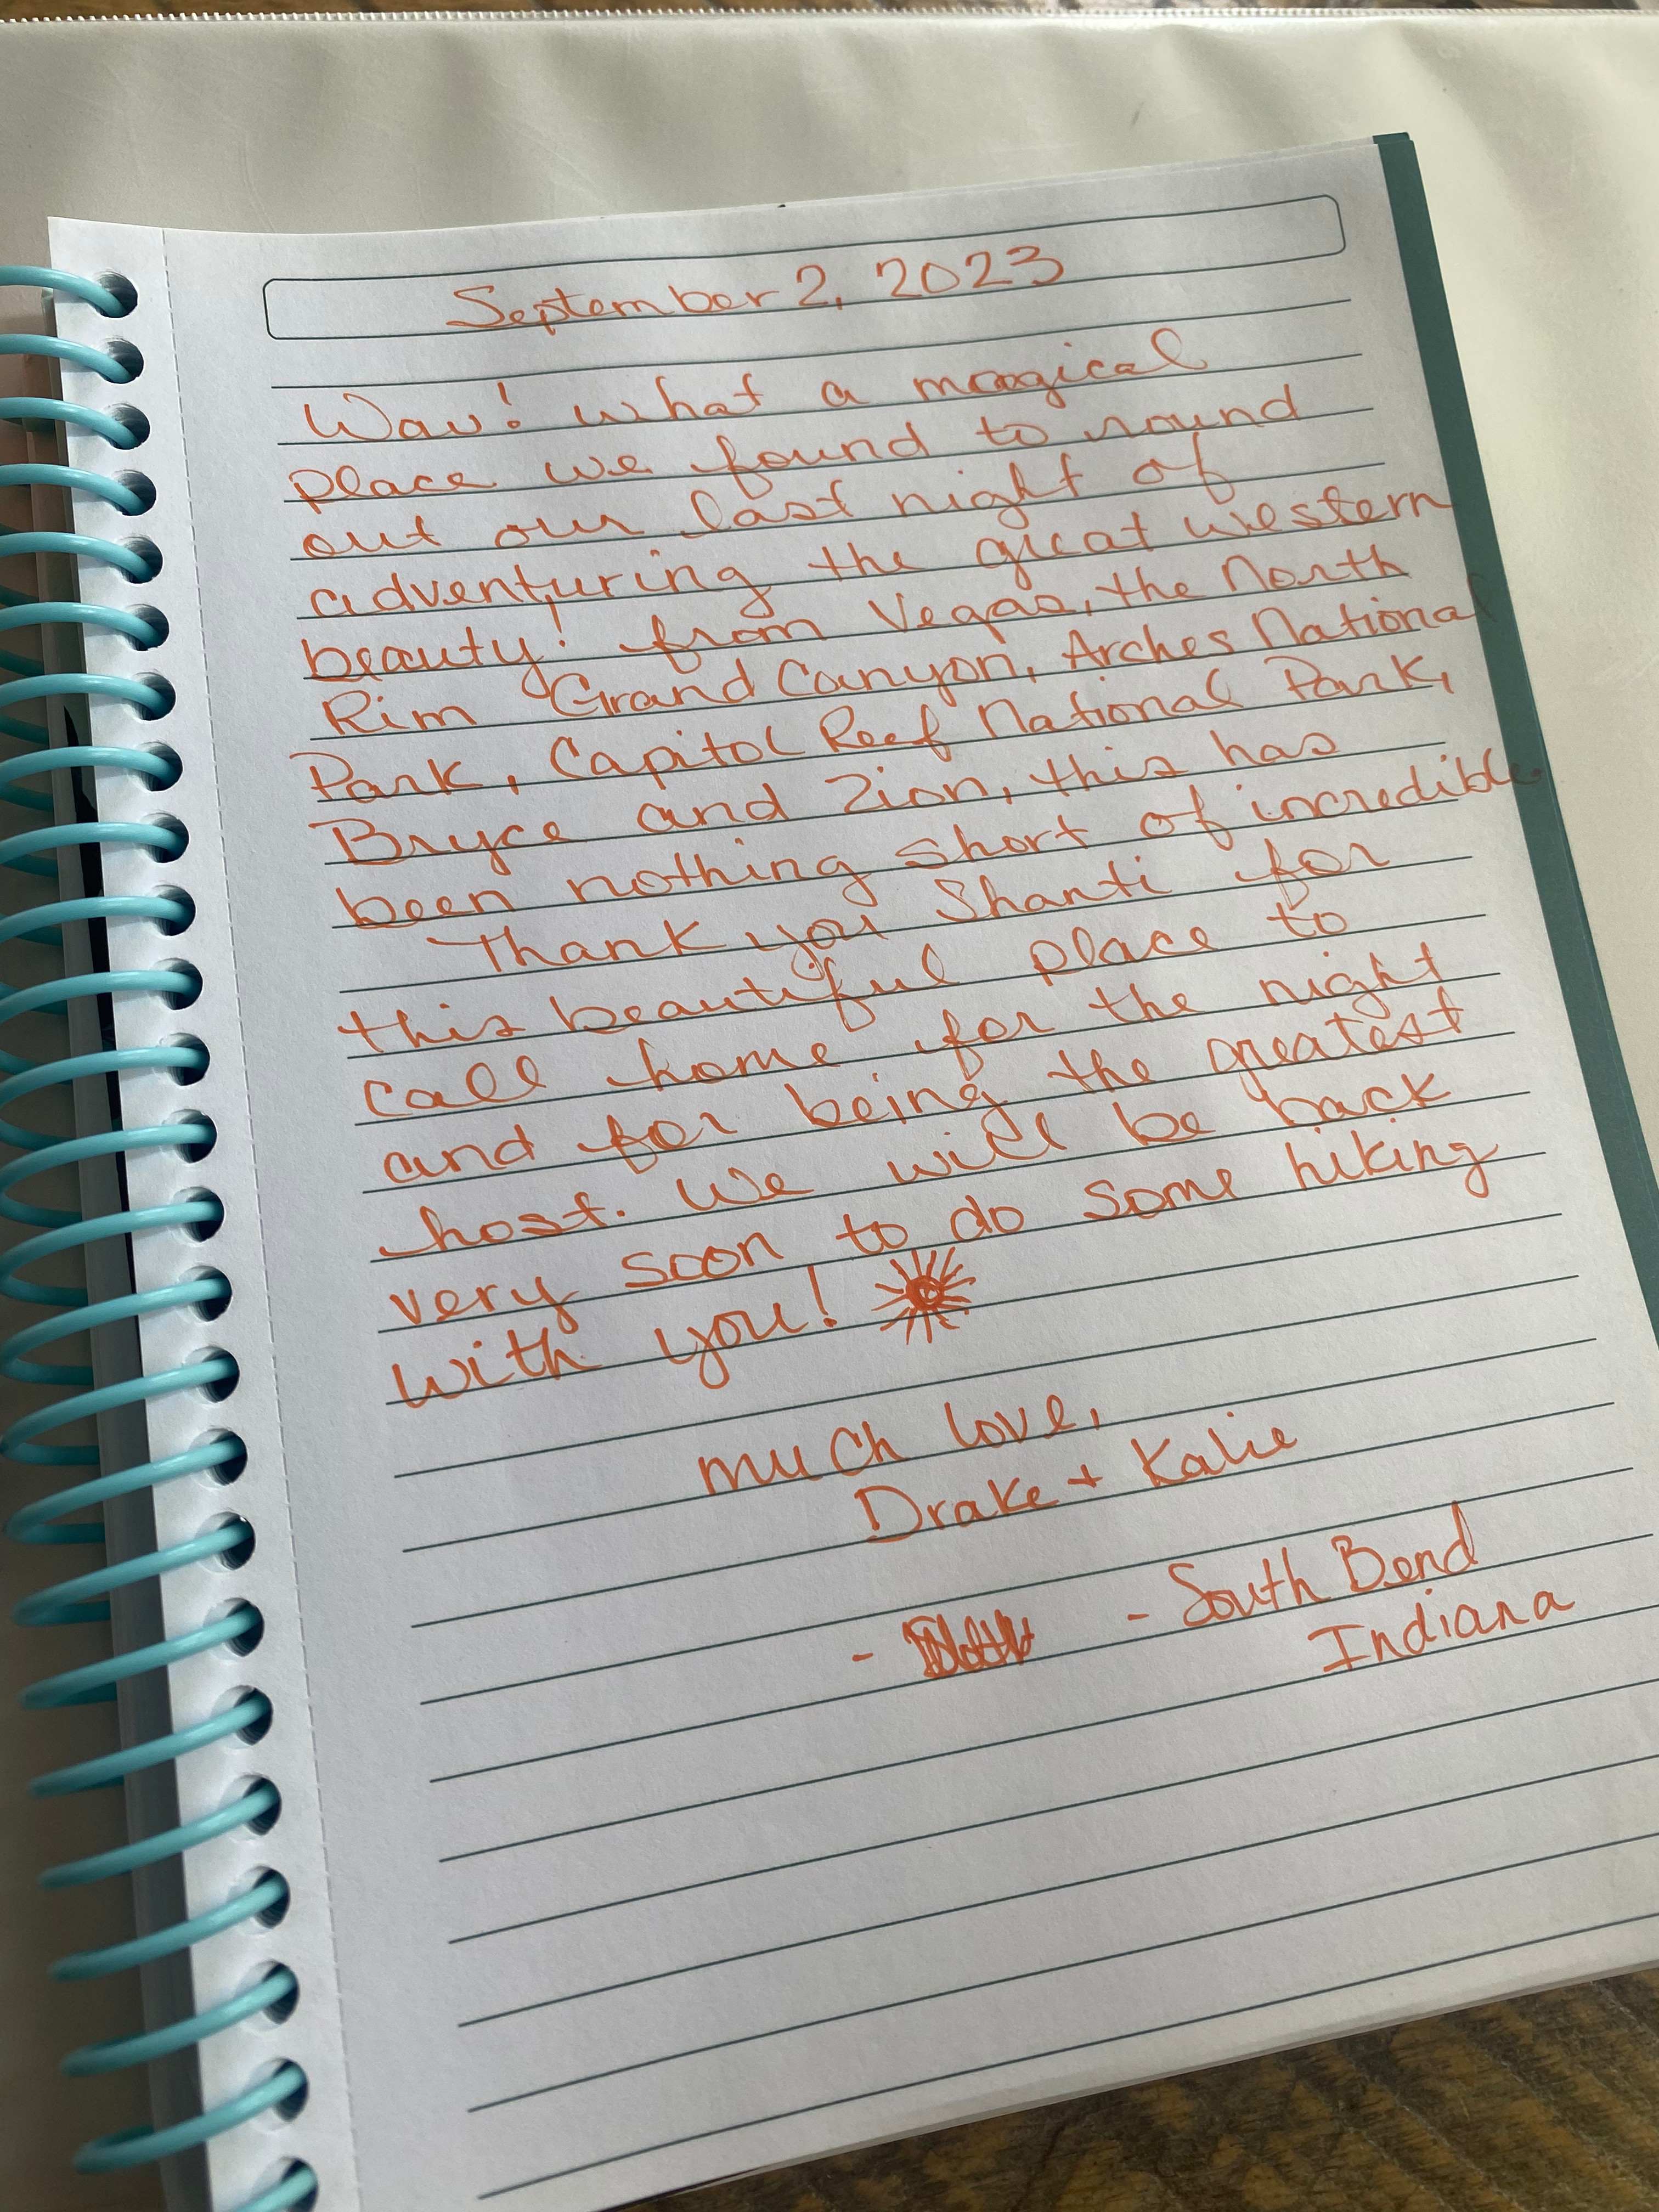 September 2, 2023
Wow! what a magical
place we found to round
out our last night of
adventuring the great western
beauty! from Vegas, the North
Rim Grand Canyon, Arches National
Park, Capitol Reef National Park,
Bryce and Zion, this has
been nothing short of incredible
Thank you Shanti for
this beautiful place to
call home for the night
and for being the greatest
host. We will be back
very soon to do some hiking
with you!
much love,
Drake + Kalie
- South Bend
Indiana